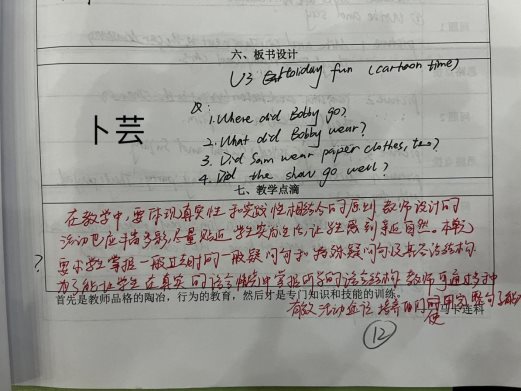 六、板书设计
U3 Holiday fun (cartoon time)
Q:
1. Where did Bobby go?
卜芸
2. What did Bobby wear?
3. Did Sam wear paper clothes, too?
4. Did the show go well?
七、教学点滴
在教学中,要体现真实性和实践性相结合的原则,教师设计的
活动应丰富多彩,尽量贴近学生实际生活,让学生感到亲近自然。本单元
要求学生掌握一般过去时的一般疑问句和特殊疑问句及其答语结构
为了能让学生在真实的语言情境中掌握所学的语言结构,教师可通过多种
首先是教师品格的陶冶,行为的教育,然后才是专门知识和技能的训练。
有效活动 培养
马卡连科
12